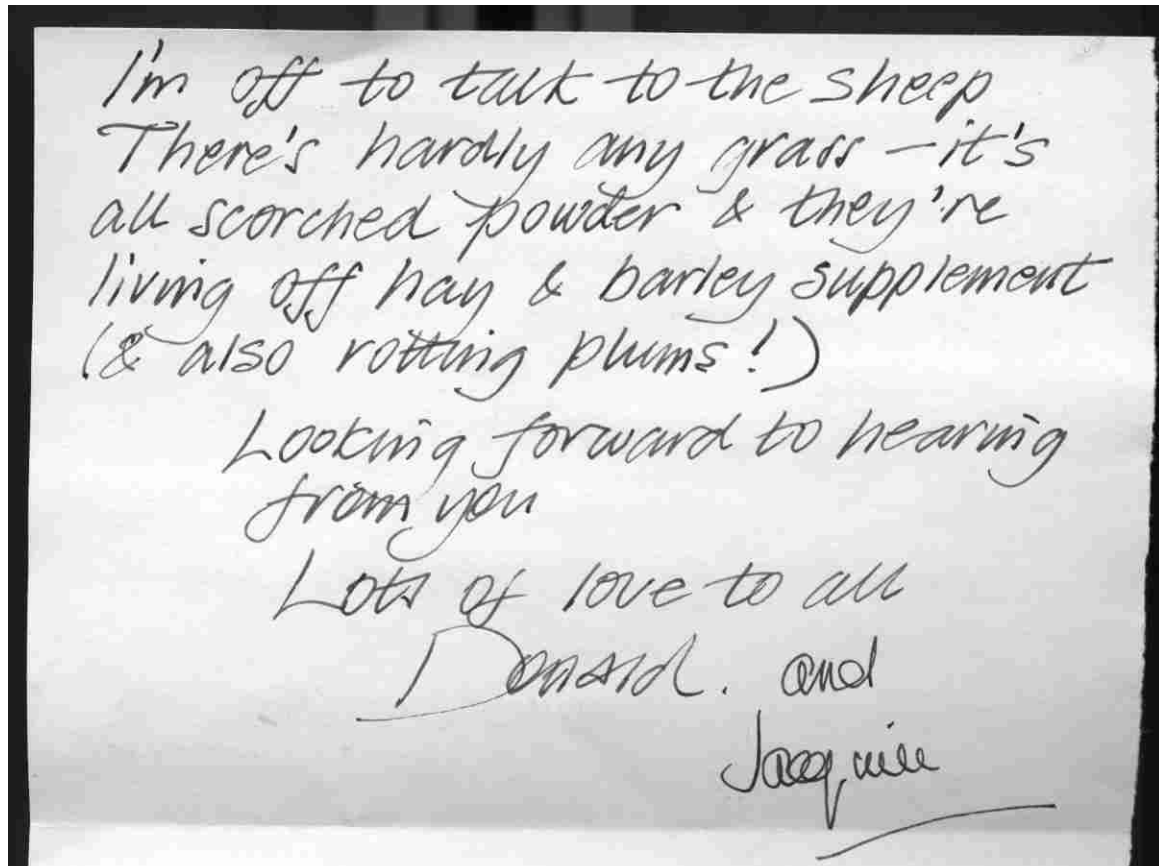 I'm off to talk to the sheep
There's hardly any grass – it's
all scorched powder & they're
living off hay & barley supplement
(& also rotting plums!)
Looking forward to hearing
from you
Lots of love to all
Donald. and
Jacquie